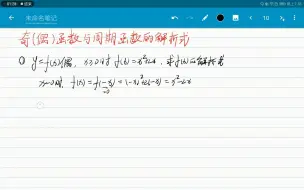 未命名笔记
奇(偶)函数与周期函数的解析式
① y=f(x)偶, x≥0时 f(x)=x²+2x, 求f(x)的解析式
x<0时, f(x)=f(-x)=(-x)²+2(-x)=x²-2x